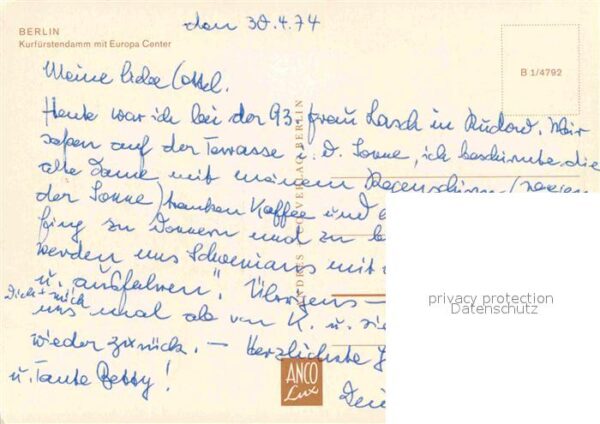 den 30.4.74
BERLIN
Kurfürstendamm mit Europa Center
B 1/4792
Meine liebe
Heute war ich bei der 93. Frau Lasch in Rudow. Wir
saßen auf der Terrasse i. d. Sonne, ich beschirmte die
alte Dame mit meinem Regenschirm (wegen
der Sonne) tranken Kaffee und
fing zu Donnern und zu
werden uns Schoemanns mit
u. "ausfahren". Übrigens -
Dich + mich
uns mal ab von K. u.
wieder zurück. - Herzlichste
u. Tante Betty!
ANDRES + CO VERLAG BERLIN
ANCO
Lux
privacy protection
Datenschutz